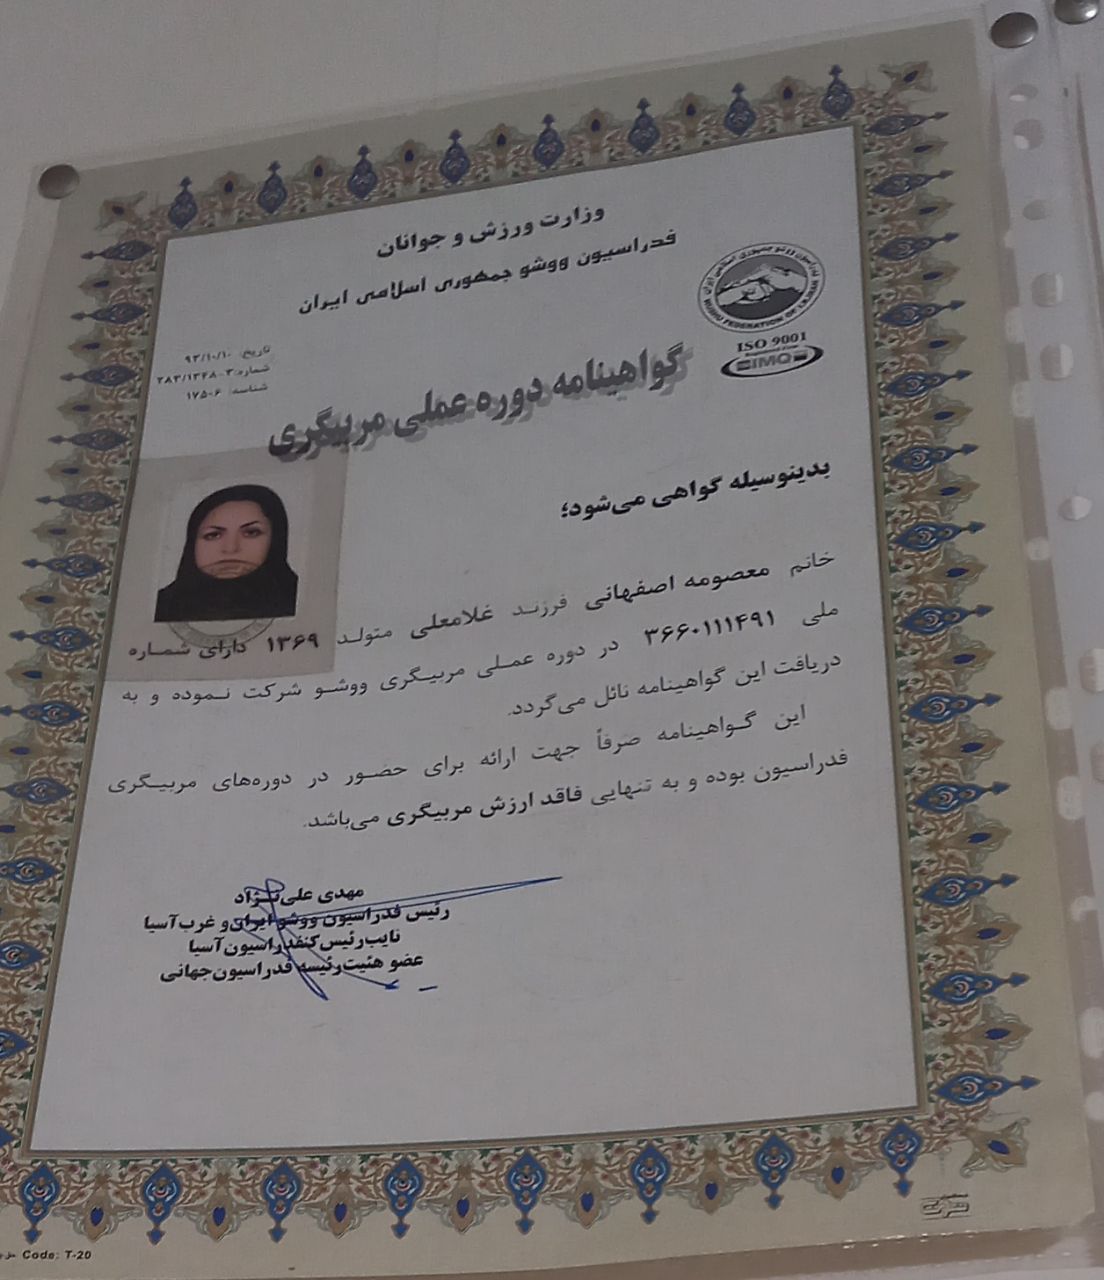 وزارت ورزش و جوانان
فدراسیون ووشو جمهوری اسلامی ایران
فدراسیون ووشو جمهوری اسلامی ایران
WUSHU FEDERATION OF I.R.IRAN
ISO 9001
IMQ
تاریخ: ۹۳/۱۰/۱۰
شماره: ۲۸۳/۱۳۶۸-۳
شناسه: ۱۷۵۰۶
گواهینامه دوره عملی مربیگری
بدینوسیله گواهی می‌شود؛
خانم معصومه اصفهانی فرزند غلامعلی متولد ۱۳۶۹ دارای شماره
ملی ۳۶۶۰۱۱۱۴۹۱ در دوره عملی مربیگری ووشو شرکت نموده و به
دریافت این گواهینامه نائل می‌گردد.
این گواهینامه صرفاً جهت ارائه برای حضور در دوره‌های مربیگری
فدراسیون بوده و به تنهایی فاقد ارزش مربیگری می‌باشد.
مهدی علی‌نژاد
رئیس فدراسیون ووشو ایران و غرب آسیا
نایب رئیس کنفدراسیون آسیا
عضو هئیت رئیسه فدراسیون جهانی
Code: T-20